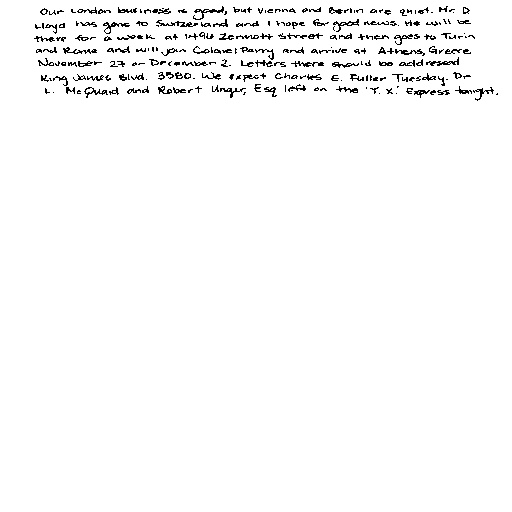 Our London business is good, but Vienna and Berlin are quiet. Mr. D
Lloyd has gone to Switzerland and I hope for good news. He will be
there for a week at 1496 Zermott Street and then goes to Turin
and Rome and will join Colonel Parry and arrive at Athens, Greece
November 27 or December 2. Letters there should be addressed
King James Blvd. 3580. We expect Charles E. Fuller Tuesday. Dr
L. McQuaid and Robert Unger, Esq left on the 'Y. X.' Express tonight.